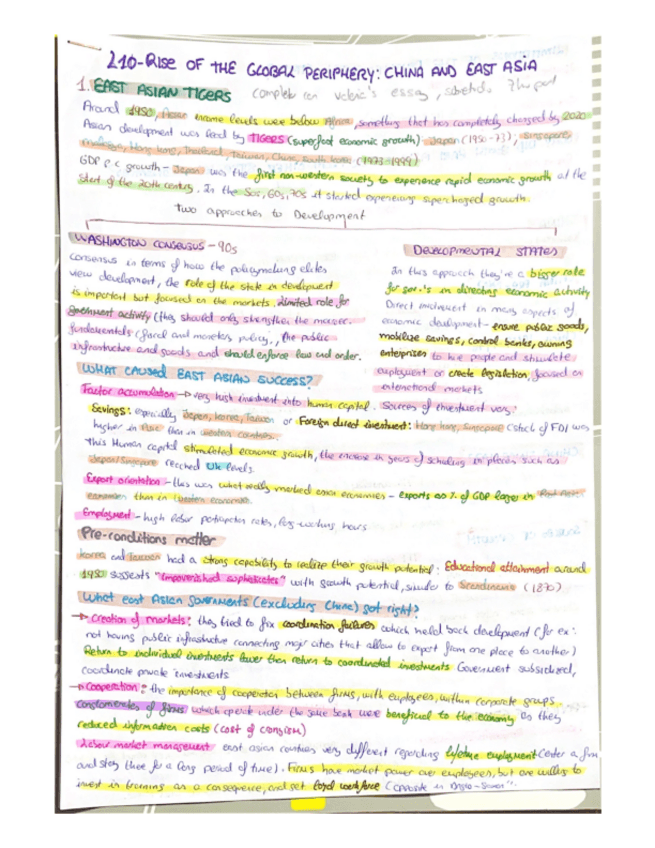 L10-RISE OF THE GLOBAL PERIPHERY: CHINA AND EAST ASIA
1. EAST ASIAN TIGERS complete essay,
Around 1950, Asian income levels were below Africa, something that has completely changed by 2020
Asian development was lead by TIGERS (superfast economic growth) - Japan (1950-73), Singapore
Malaysia, Hong Kong, Thailand, Taiwan, China, South Korea (1973-1999)
GDP p.c growth - Japan was the first non-western society to experience rapid economic growth at the
start of the 20th century. In the 50s, 60s, 70s it started experiencing supercharged growth.
Two approaches to Development
WASHINGTON CONSENSUS - 90s
consensus in terms of how the policymaking elites
view development, the role of the state in development
is important but focused on the markets. Limited role for
government activity (they should only strengthen the
fundamentals (fiscal and monetary policy., the public
infrastructure and goods and should enforce law and order.
DEVELOPMENTAL STATES
In this approach they're a bigger role
for gov.'s in directing economic activity
Direct involvement in many aspects of
economic development - ensure public goods,
mobilize savings, control banks, owning
enterprises to hire people and stimulate
employment or create legislation, focused on
international markets
WHAT CAUSED EAST ASIAN SUCCESS?
Factor accumulation -> very high investment into human capital. Sources of investment vary:
Savings: especially Japan, Korea, Taiwan or Foreign direct investment: Hong Kong, Singapore (stock of FDI was
higher in Asia than in western countries.
This Human capital stimulated economic growth, the increase in years of schooling in places such as
Japan/Singapore reached UK levels.
Export orientation - this was what really marked asian economies - exports as % of GDP larger in
economies than in western economies.
Employment - high labor participation rates, long-working hours
Pre-conditions matter
Korea and Taiwan had a strong capability to realize their growth potential: Educational attainment around
1950 suggests "impoverished sophisticates" with growth potential, similar to Scandinavia (1870)
What east Asian Governments (excluding China) got right?
-> Creation of markets: they tried to fix coordination failures which held back development (for ex:
not having public infrastructure connecting major cities that allow to export from one place to another)
Return to individual investments lower than return to coordinated investments Government subsidized,
coordinate private investments
-> Cooperation: the importance of cooperation between firms, with employees, within corporate groups.
conglomerates of firms which operate under the same bank were beneficial to the economy as they
reduced information costs (cost of
Labour market management east asian countries very different regarding lifetime employment (enter a firm
and stay there for a long period of time). Firms have market power over employees, but are willing to
invest in training as a consequence, and get loyal workforce (opposite in Anglo-Saxon".